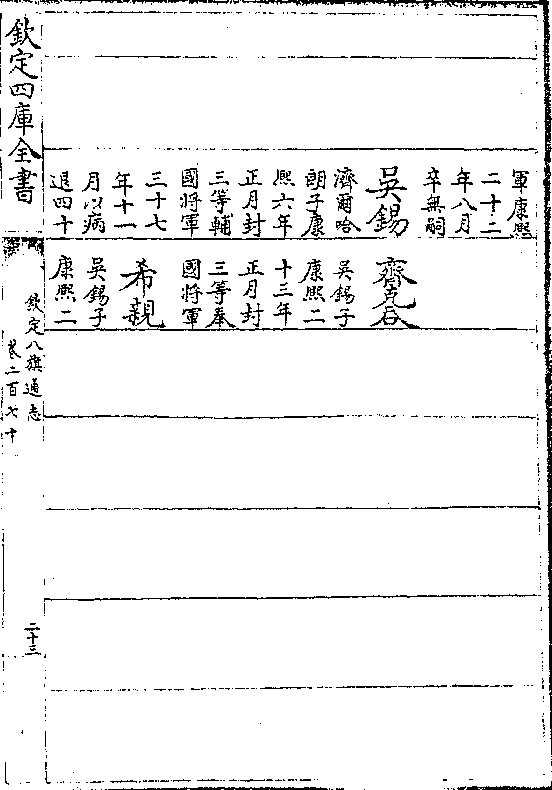 軍康熙
二十二
年八月
卒無嗣
吳錫
濟爾哈
朗子康
熙六年
正月封
三等輔
國將軍
三十七
年十一
月以病
退四十
吳錫子
康熙二
十三年
正月封
三等奉
國將軍
希親
吳錫子
康熙二
欽定四庫全書
欽定八旗通志
卷二百七十
二十三